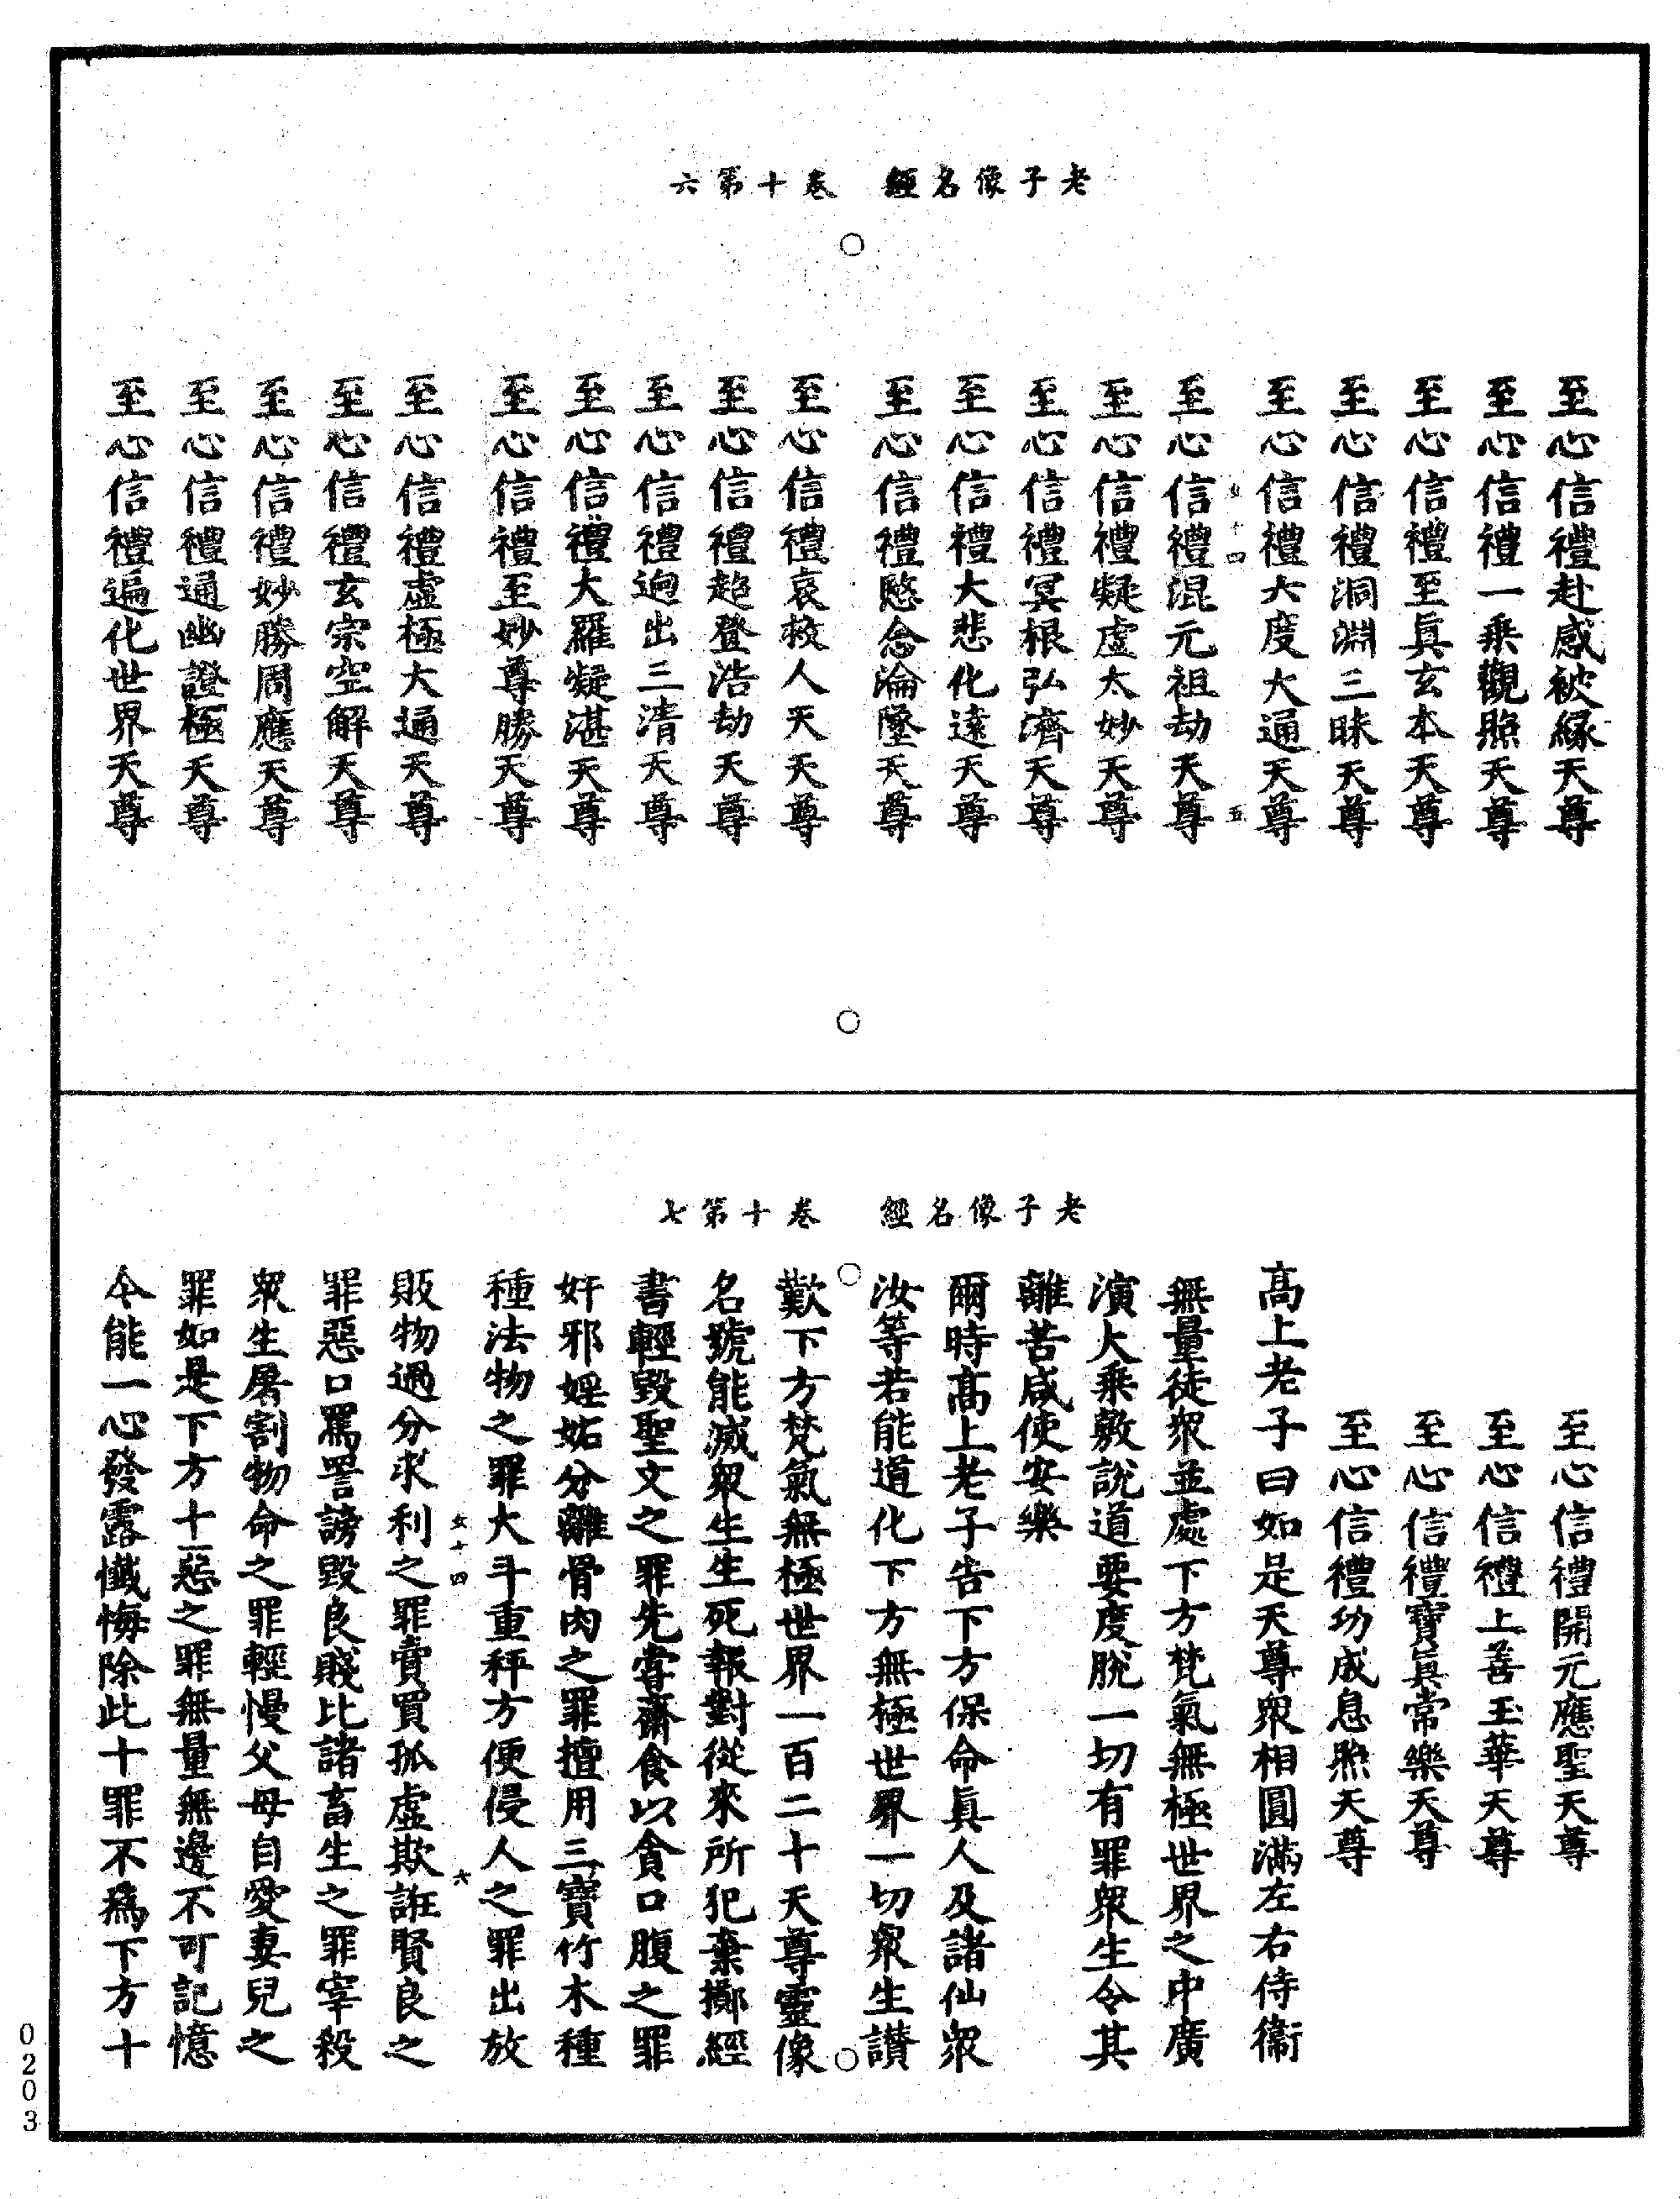 老子像名經 卷十第六
至心信禮赴感被緣天尊
至心信禮一乗觀照天尊
至心信禮至眞玄本天尊
至心信禮洞淵三昧天尊
至心信禮大度大通天尊
女十四 五
至心信禮混元祖劫天尊
至心信禮凝虛太妙天尊
至心信禮冥根弘濟天尊
至心信禮大悲化遠天尊
至心信禮愍念淪墜天尊
至心信禮哀救人天天尊
至心信禮超登浩劫天尊
至心信禮迥出三清天尊
至心信禮大羅凝湛天尊
至心信禮至妙尊勝天尊
至心信禮虛極大通天尊
至心信禮玄宗空解天尊
至心信禮妙勝周應天尊
至心信禮通幽證極天尊
至心信禮遍化世界天尊
老子像名經 卷十第七
至心信禮開元應聖天尊
至心信禮上善玉華天尊
至心信禮寶眞常樂天尊
至心信禮功成息照天尊
高上老子曰如是天尊眾相圓滿左右侍衞
無量徒眾並處下方梵氣無極世界之中廣
演大乗敷說道要度脫一切有罪眾生令其
離苦咸使安樂
爾時高上老子告下方保命眞人及諸仙眾
汝等若能道化下方無極世界一切眾生讃
歎下方梵氣無極世界一百二十天尊靈像
名號能滅眾生生死報對從來所犯棄擲經
書輕毀聖文之罪先甞齋食以貪口腹之罪
奸邪婬妬分離骨肉之罪擅用三寶竹木種
種法物之罪大斗重秤方便侵人之罪出放
女十四 六
販物過分求利之罪賣買孤虛欺誑賢良之
罪惡口罵詈謗毀良賤比諸畜生之罪宰殺
眾生屠割物命之罪輕慢父母自愛妻兒之
罪如是下方十惡之罪無量無邊不可記憶
今能一心發露懺悔除此十罪不爲下方十
0203